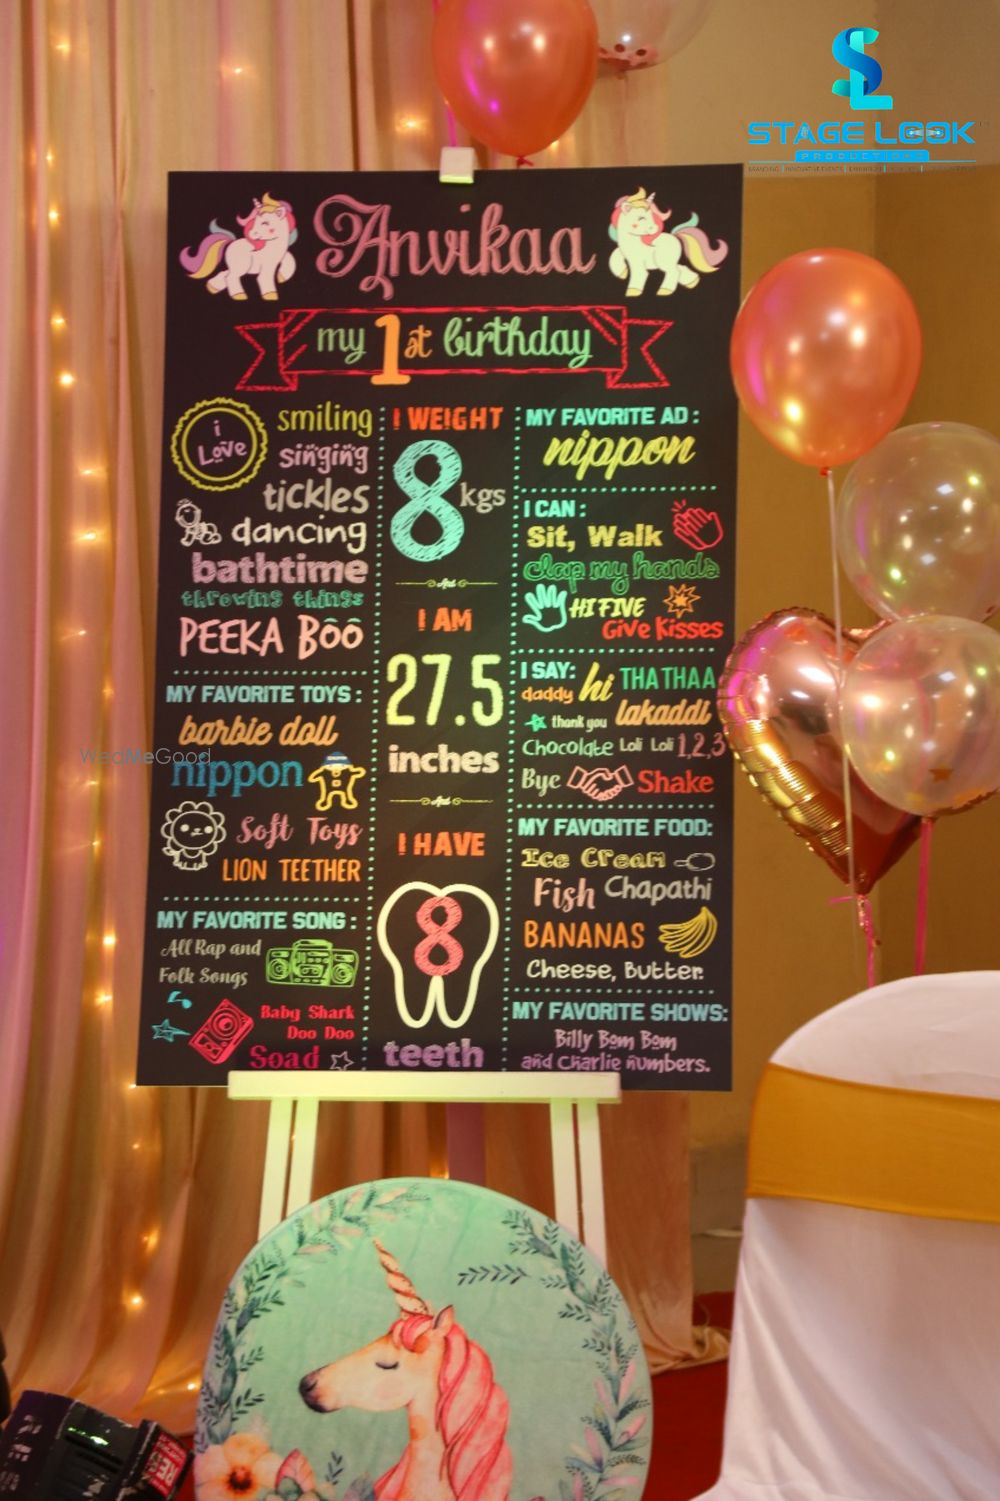 SL
STAGE LOOK
PRODUCTIONS
Anvikaa
my 1st birthday
i Love
smiling
singing
tickles
dancing
bathtime
throwing things
PEEKA BOO
MY FAVORITE TOYS:
barbie doll
nippon
Soft Toys
LION TEETHER
MY FAVORITE SONG:
All Rap and
Folk Songs
Baby Shark
Doo Doo
Soad
I WEIGHT
8 kgs
And
I AM
27.5
inches
And
I HAVE
8
teeth
MY FAVORITE AD:
nippon
I CAN:
Sit, Walk
clap my hands
HI FIVE
Give Kisses
I SAY:
daddy hi THATHAA
thank you lakaddi
Chocolate Loli Loli 1,2,3
Bye Shake
MY FAVORITE FOOD:
Ice Cream
Fish Chapathi
BANANAS
Cheese, Butter.
MY FAVORITE SHOWS:
Billy Bom Bom
and Charlie numbers.
WedMeGood